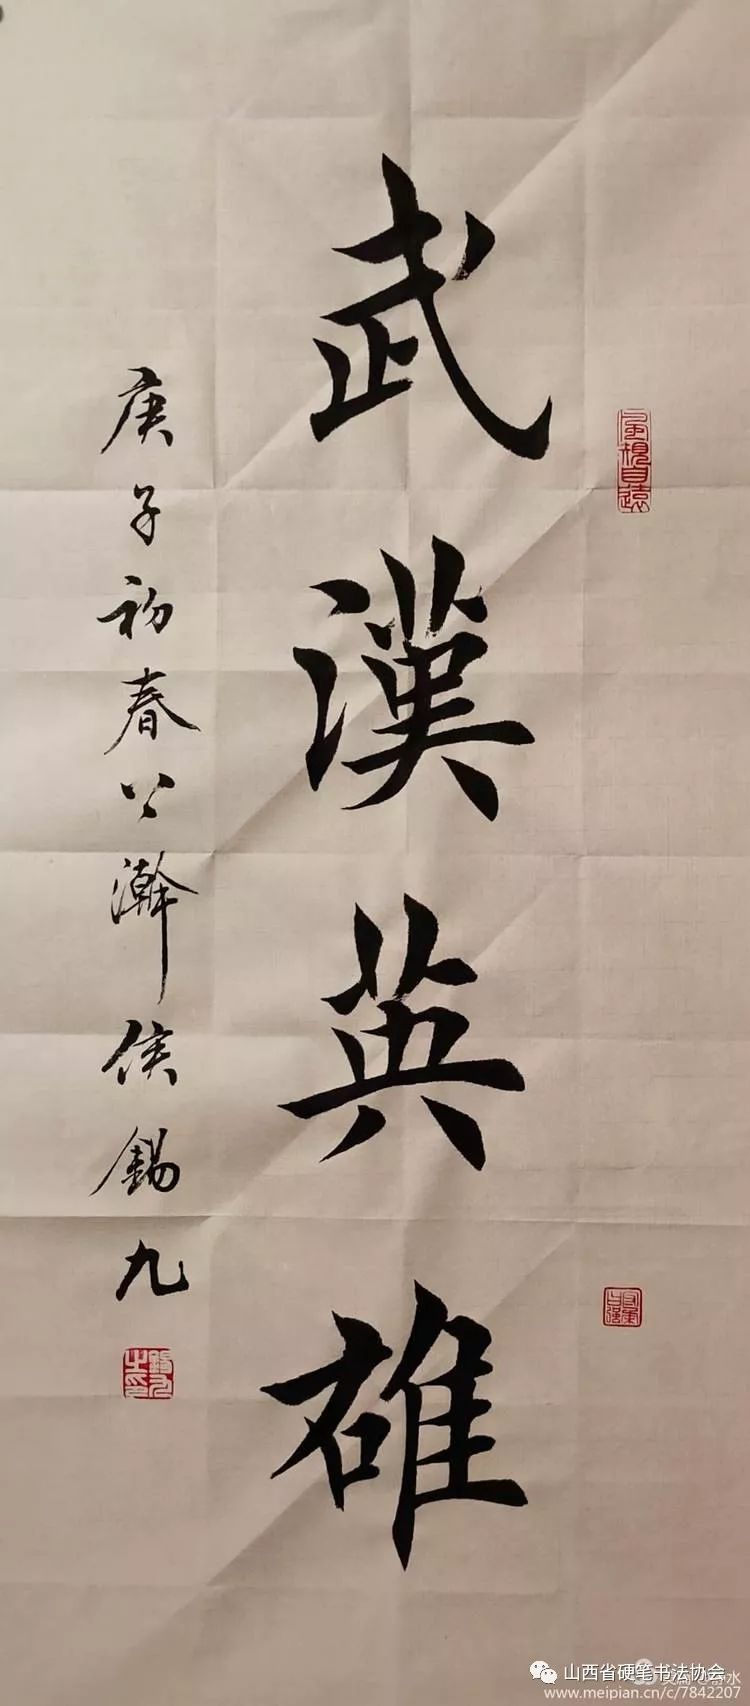 武漢英雄
庚子初春公瀚侯錫九
山西省硬笔书法协会
www.meipian.cn/c/7842207